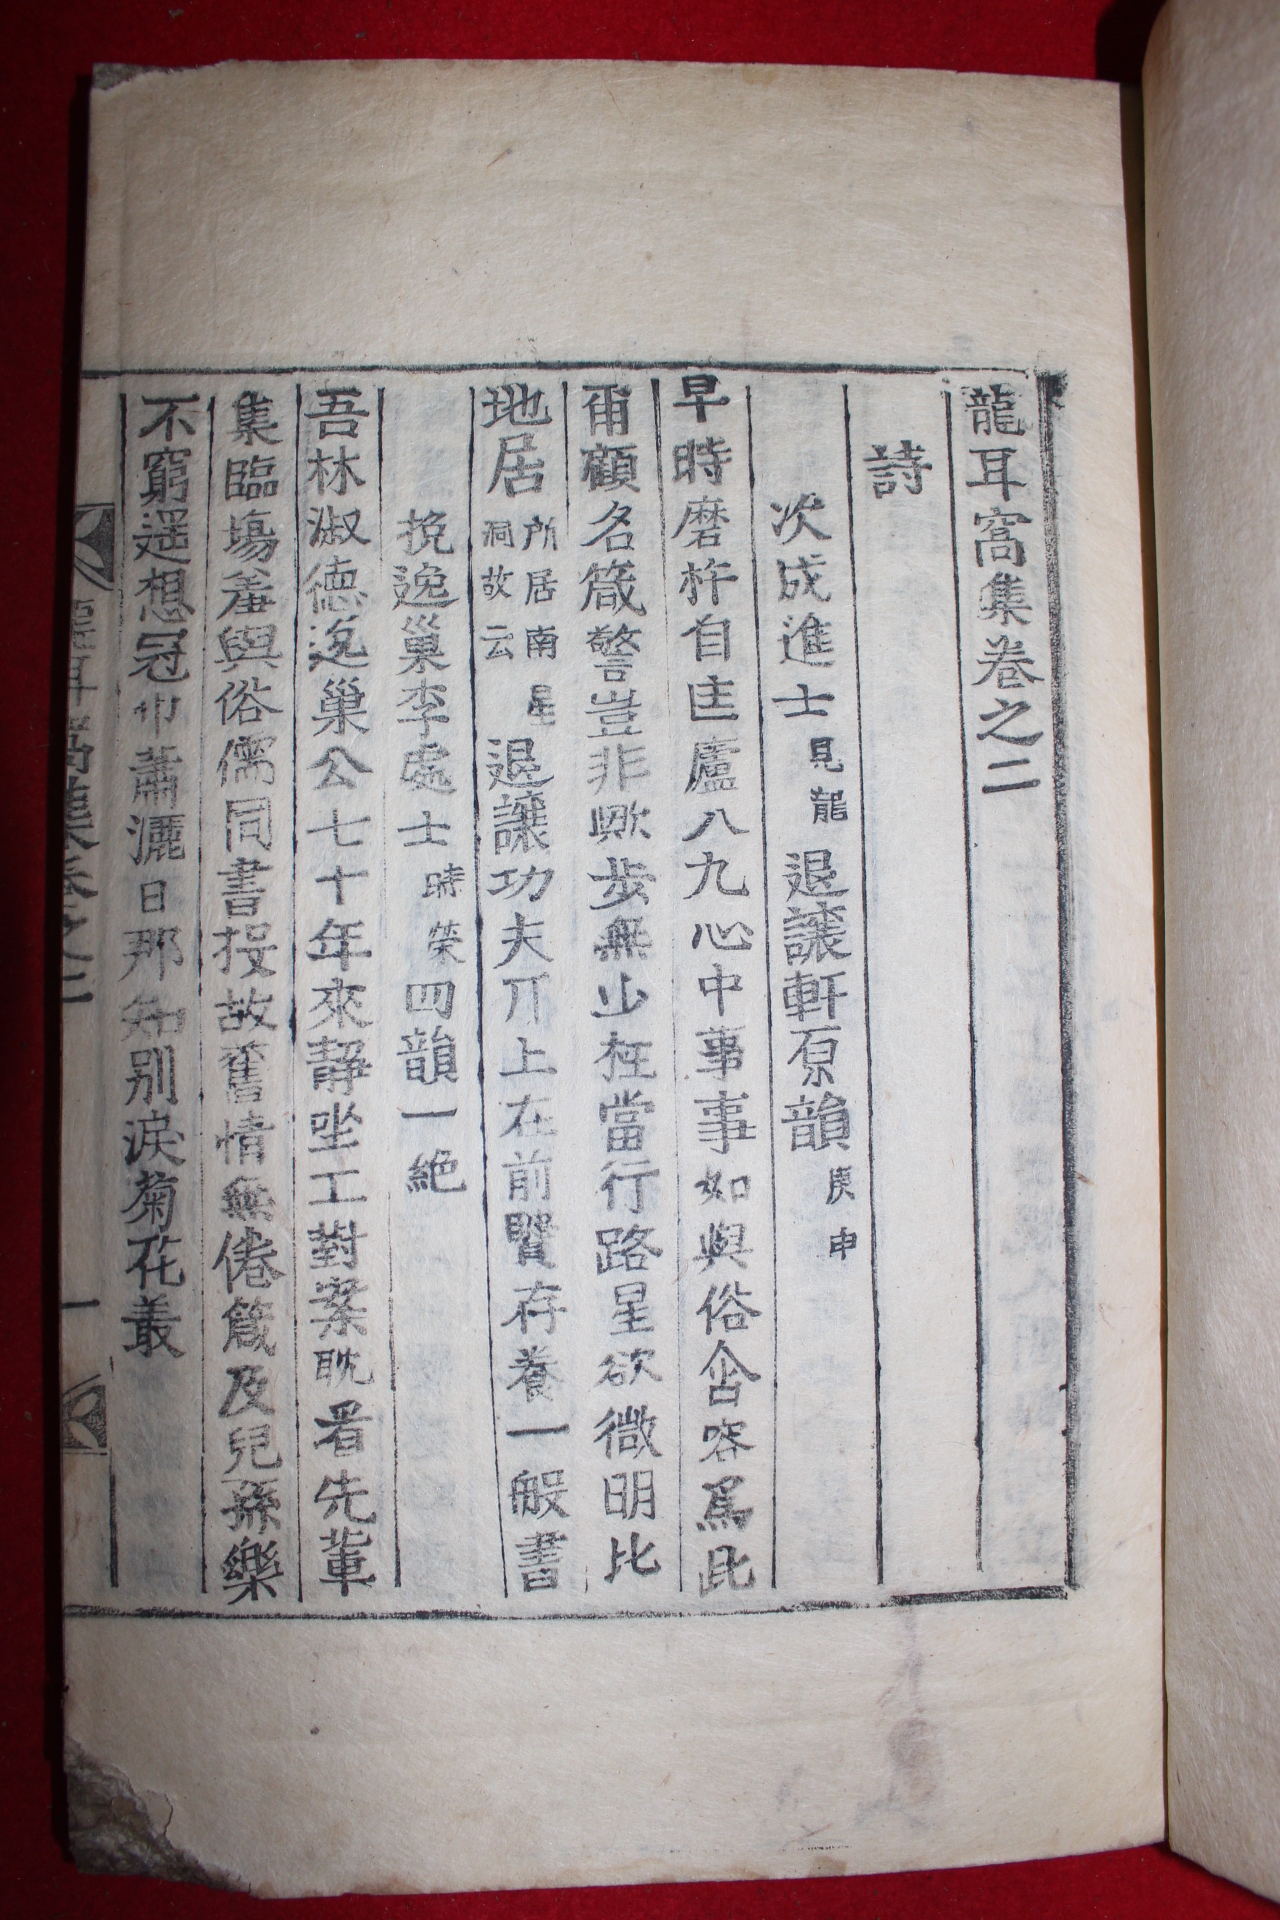 龍耳窩集卷之二
詩
次成進士見龍退讓軒原韻庚申
早時磨杵自匡廬八九心中事事如與俗含容爲此
爾顧名箴警豈非歟步無少枉當行路星欲微明比
地居所居南星洞故云退讓功夫丌上在前賢存養一般書
挽逸巢李處士時榮四韻一絶
吾林淑德逸巢公七十年來靜坐工對案耽看先輩
集臨塲羞與俗儒同書投故舊情無倦箴及兒孫樂
不窮遥想冠巾蕭灑日那知別淚菊花叢
龍耳窩集卷之二 一